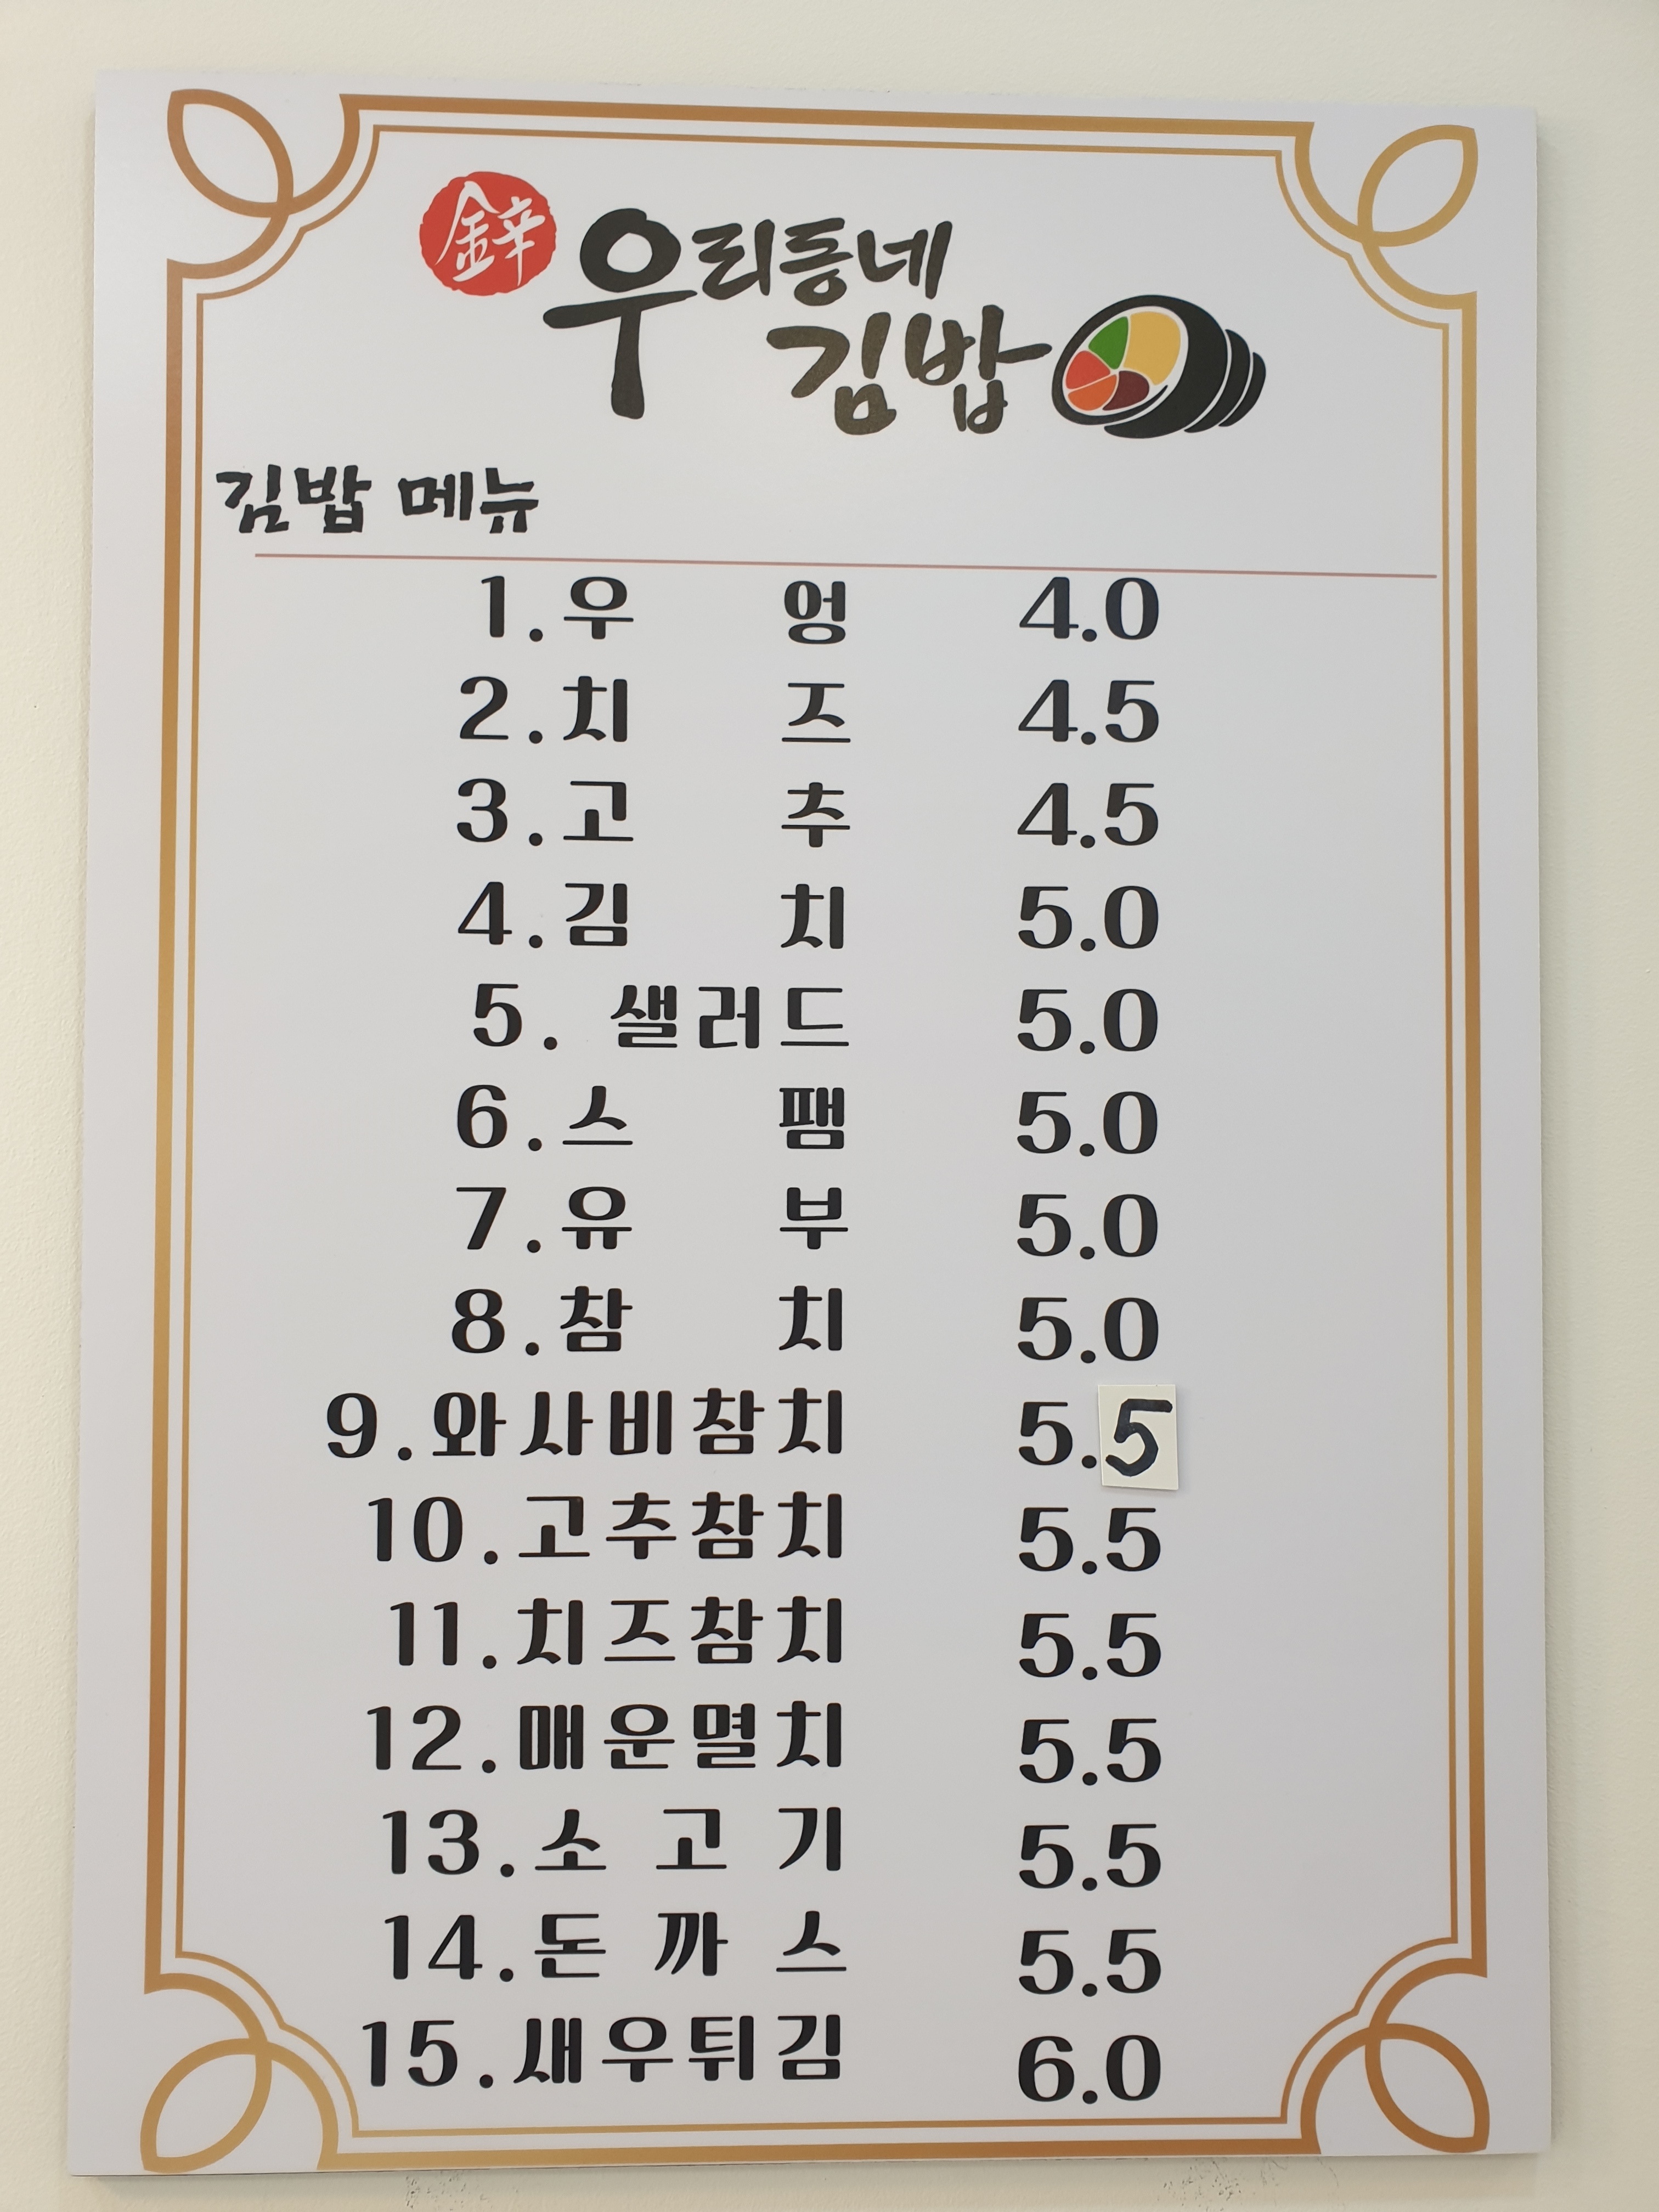 鋅 우리동네
김밥
김밥 메뉴
1.우 엉 4.0
2.치 즈 4.5
3.고 추 4.5
4.김 치 5.0
5. 샐러드 5.0
6.스 팸 5.0
7.유 부 5.0
8.참 치 5.0
9.와사비참치 5.5
10.고추참치 5.5
11.치즈참치 5.5
12.매운멸치 5.5
13.소 고 기 5.5
14.돈 까 스 5.5
15.새우튀김 6.0